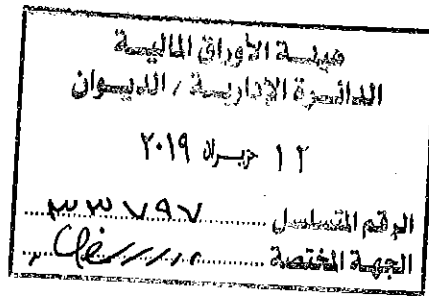 هيئة الأوراق المالية
الدائرة الإدارية / الديوان
١٢ حزيران ٢٠١٩
الرقم المتسلسل ٣٣٧٩٧
الجهة المختصة